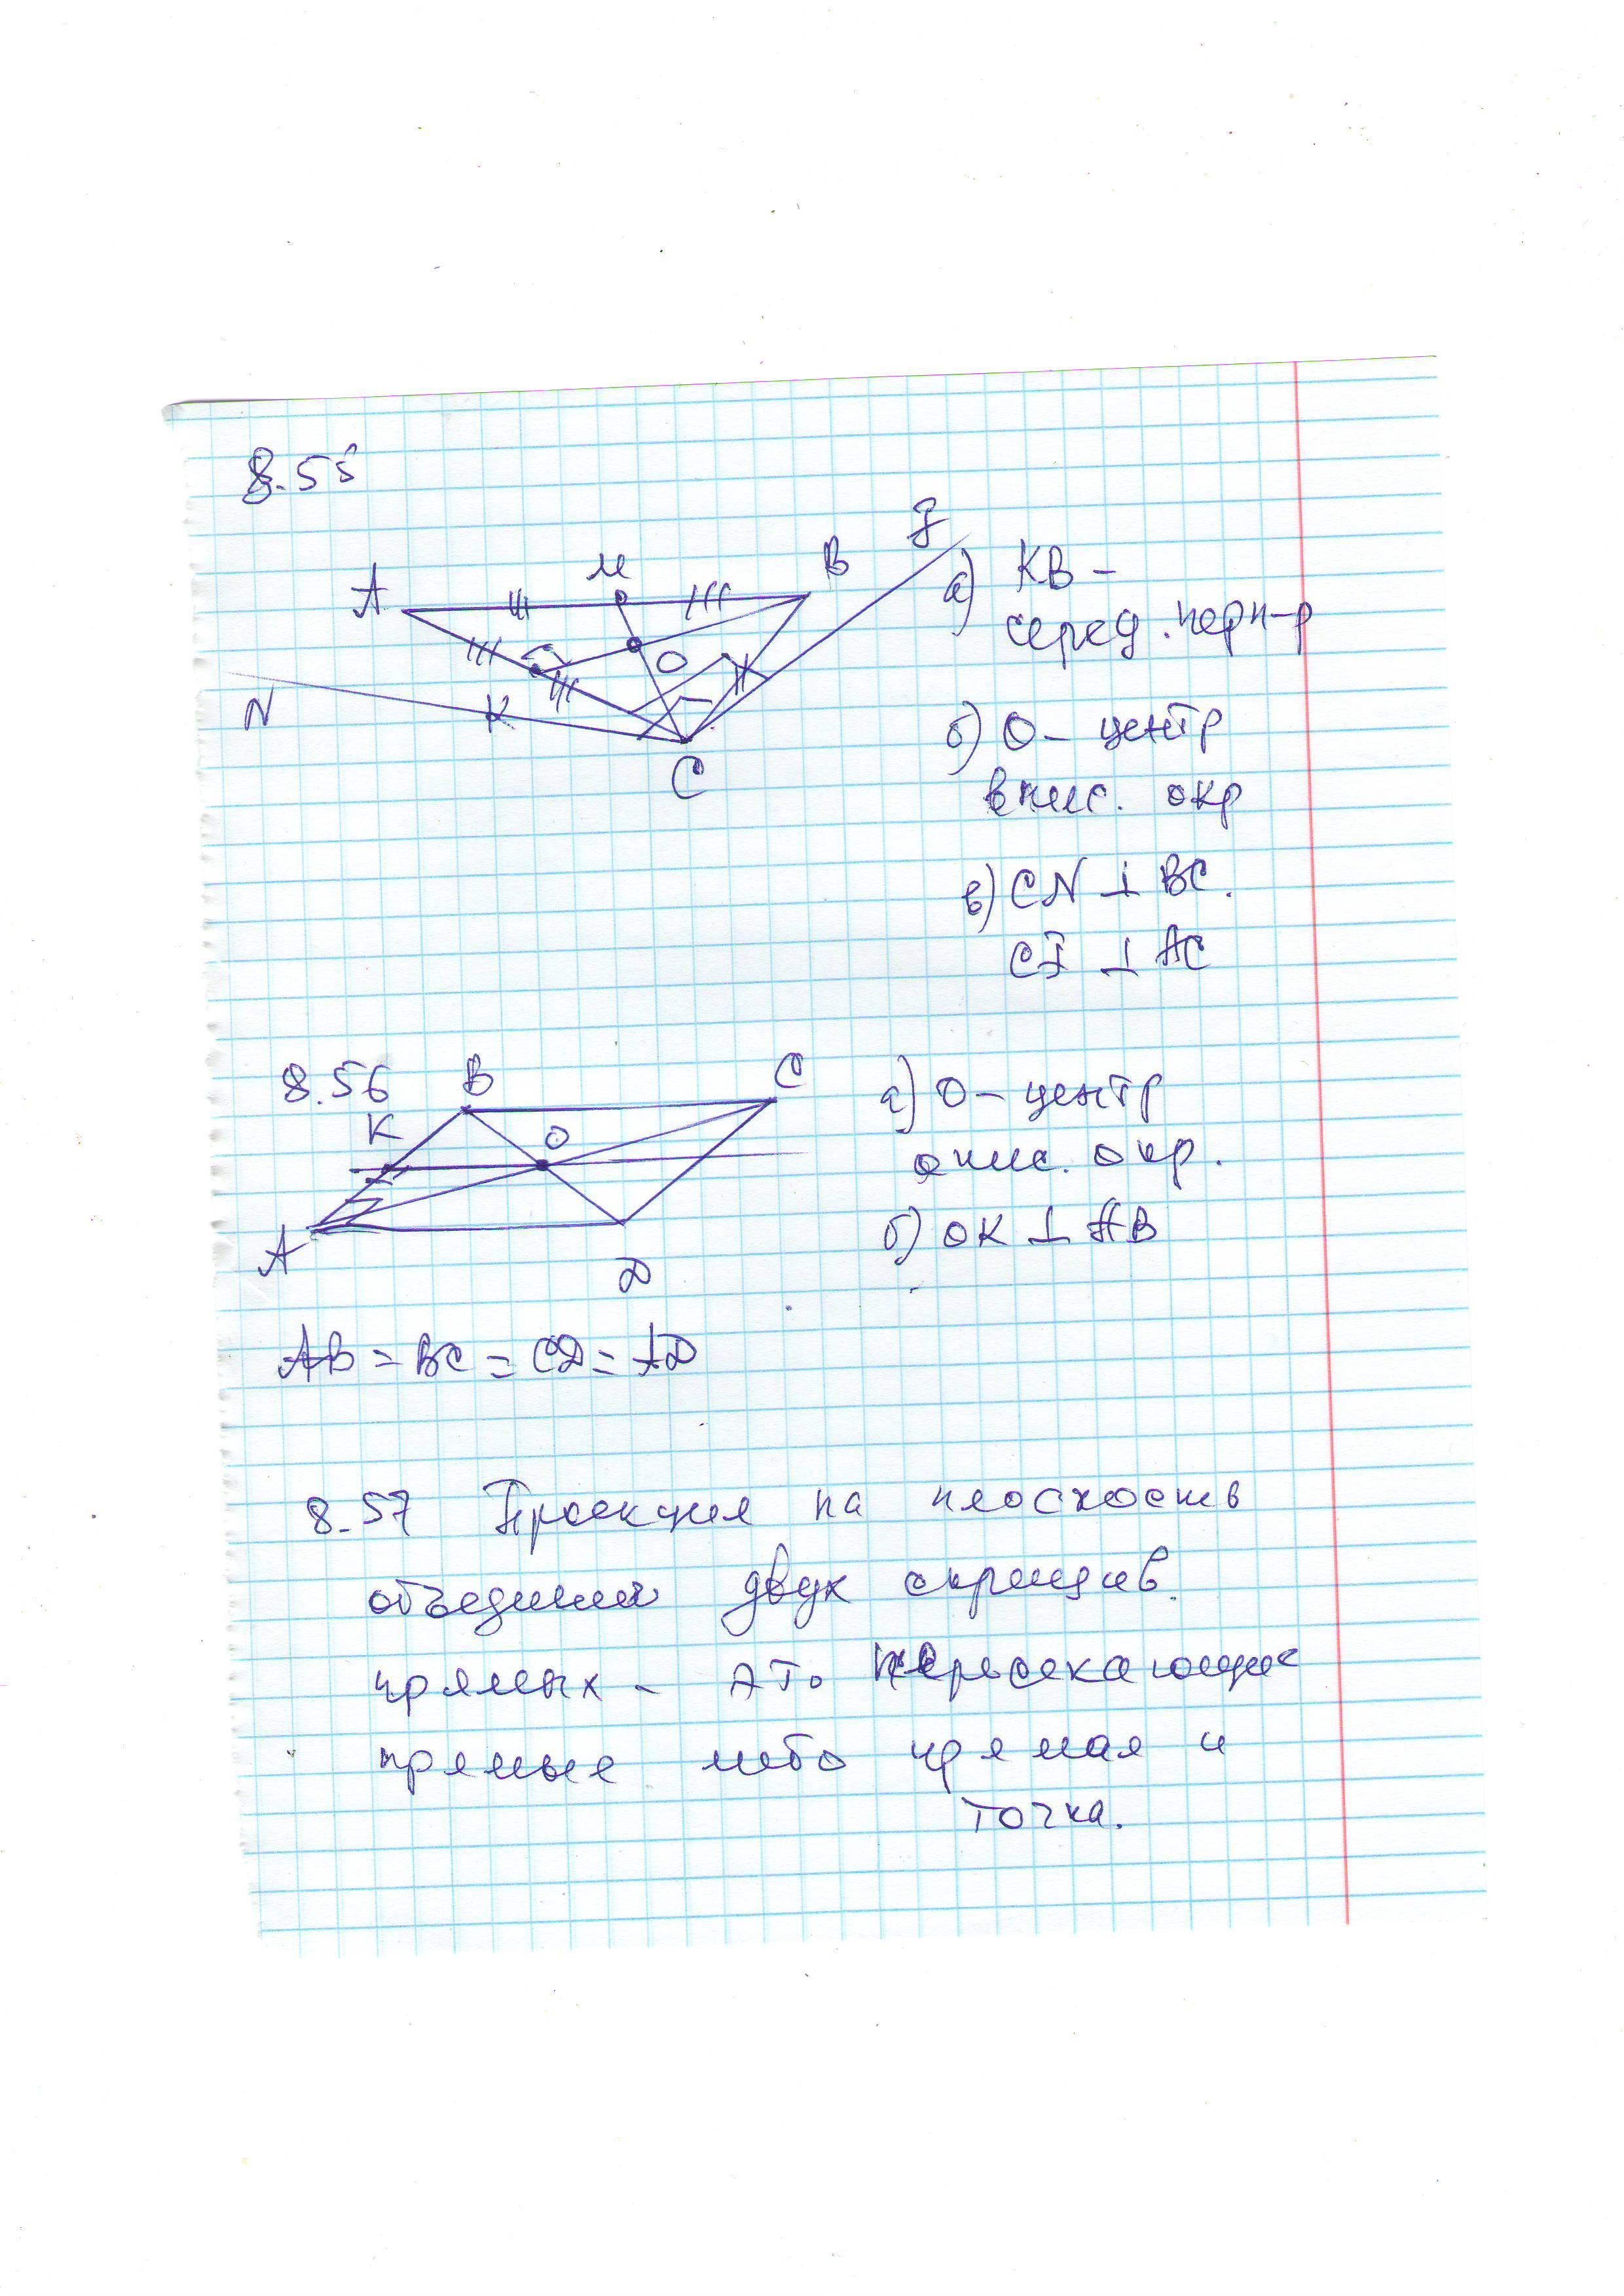 8.55
A M B F
O
N K
C
а) KB –
серед. перп-р
б) O – центр
впис. окр
в) CN ⊥ BC.
CF ⊥ AC
8.56
B C
K O
A
D
а) O – центр
опис. окр.
б) OK ⊥ AB
AB = BC = CD = AD
8.57 Проекция на плоскость
двух скрещив.
прямых – это пересекающиеся
прямые либо прямая и
точка.